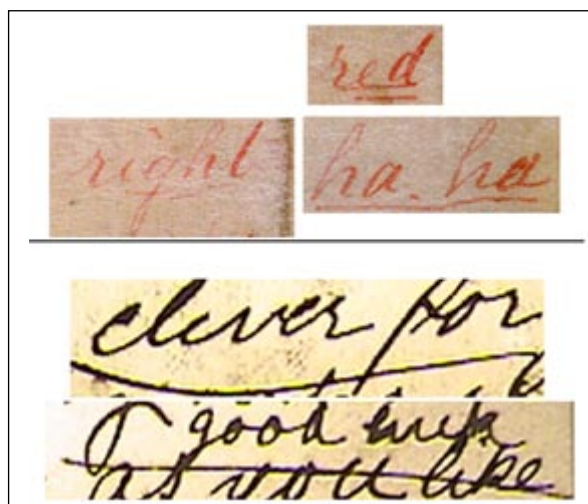 red
right
ha. ha
clever for
good luck
as you like